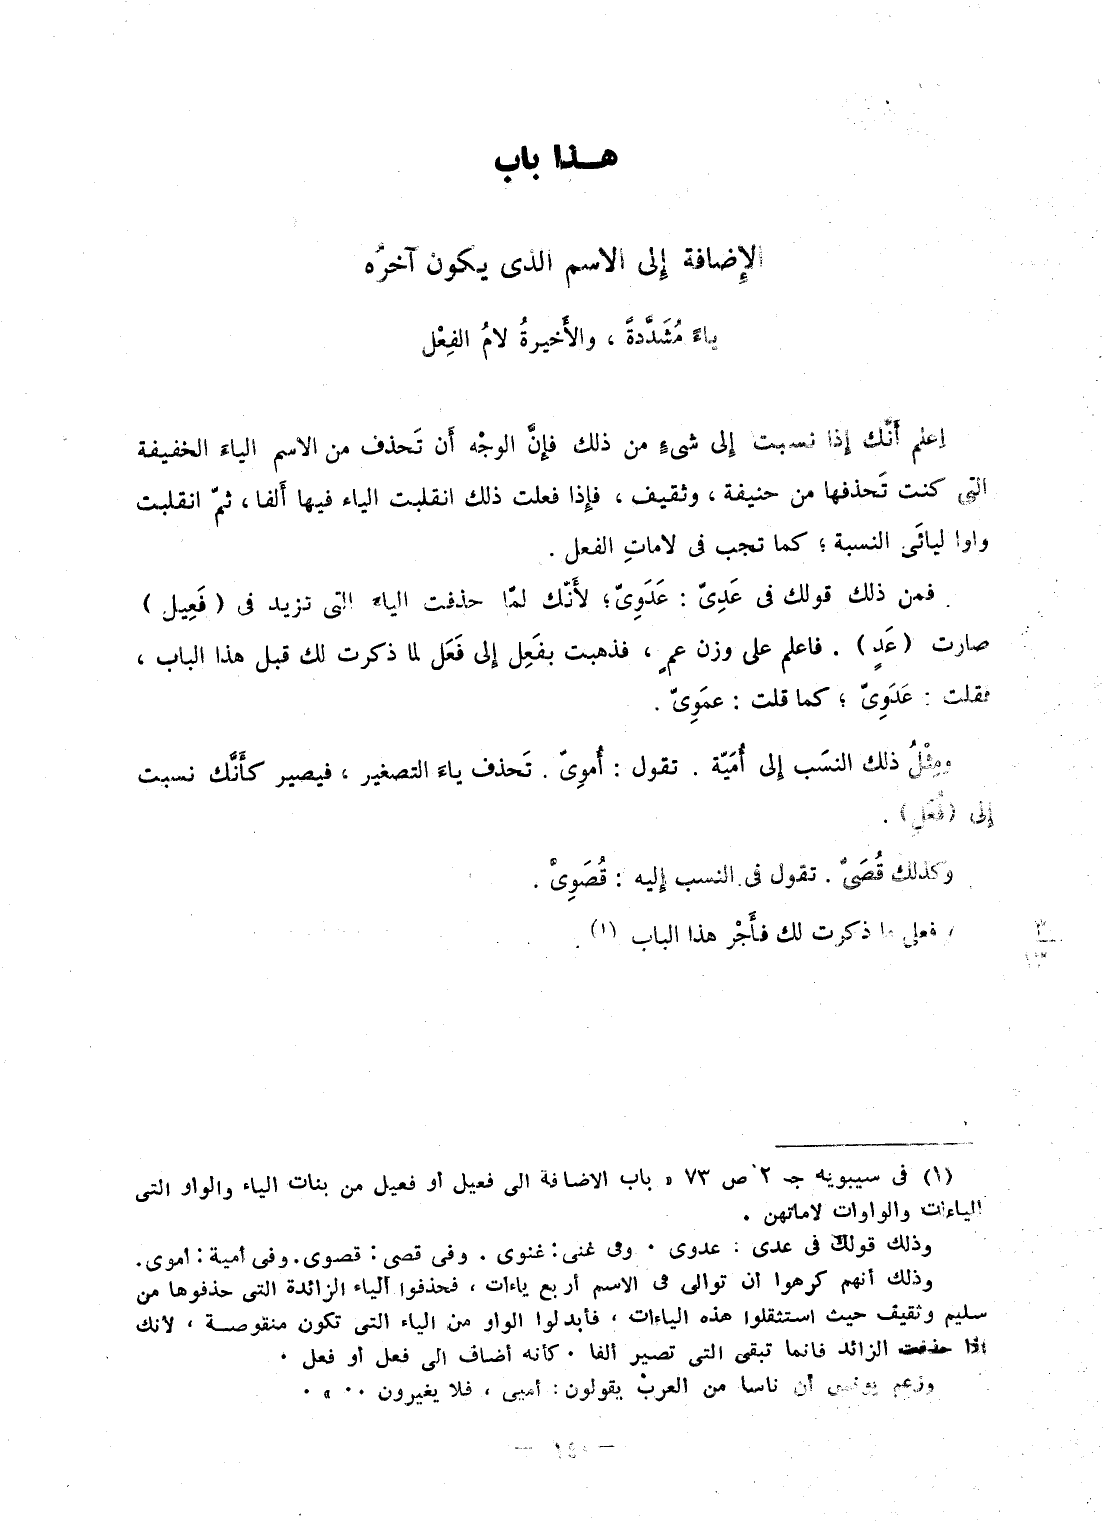 هـذا باب
الإِضافة إِلى الاسم الذى يكون آخرُه
ياءً مُشَدَّدةً ، والأَخيرةُ لامُ الفِعْل
اِعلم أَنَّك إِذا نسبت إِلى شىءٍ من ذلك فإِنَّ الوجْه أَن تَحذف من الاسم الياءَ الخفيفة
التى كنت تَحذفها من حنيفة ، وثقيف ، فإِذا فعلت ذلك انقلبت الياء فيها أَلفا ، ثمّ انقلبت
واوا ليائَى النسبة ؛ كما تجب فى لاماتِ الفعل .
فمن ذلك قولك فى عَدِىّ : عَدَوِىّ؛ لأَنَّك لمّا حذفت الياء التى تزيد فى ( فَعِيل )
صارت ( عَدٍ ) . فاعلم على وزن عمٍ ، فذهبت بفَعِل إِلى فَعَل لما ذكرت لك قبل هذا الباب ،
فقلت : عَدَوِىّ ؛ كما قلت : عمَوِىّ .
ومِثْلُ ذلك النسَب إِلى أُمَيّة . تقول : أُموِىّ . تَحذف ياءَ التصغير ، فيصير كأَنَّك نسبت
إِلى (فُعَلٍ) .
وكذلك قُصَىٌّ . تقول فى النسب إِليه : قُصَوِىّ .
/ فعلى ما ذكرت لك فأَجْرِ هذا الباب (١) .
(١) فى سيبويه جـ ٢ ص ٧٣ « باب الاضافة الى فعيل أو فعيل من بنات الياء والواو التى
الياءات والواوات لاماتهن .
وذلك قولك فى عدى : عدوى . وفى غنى : غنوى . وفى قصى : قصوى. وفى أمية : أموى.
وذلك أنهم كرهوا أن توالى فى الاسم أربع ياءات ، فحذفوا الياء الزائدة التى حذفوها من
سليم وثقيف حيث استثقلوا هذه الياءات ، فأبدلوا الواو من الياء التى تكون منقوصـة ، لأنك
اذا حذفت الزائد فانما تبقى التى تصير ألفا . كأنه أضاف الى فعل أو فعل .
وزعم يونس أن ناسا من العرب يقولون : أميى ، فلا يغيرون .. » .